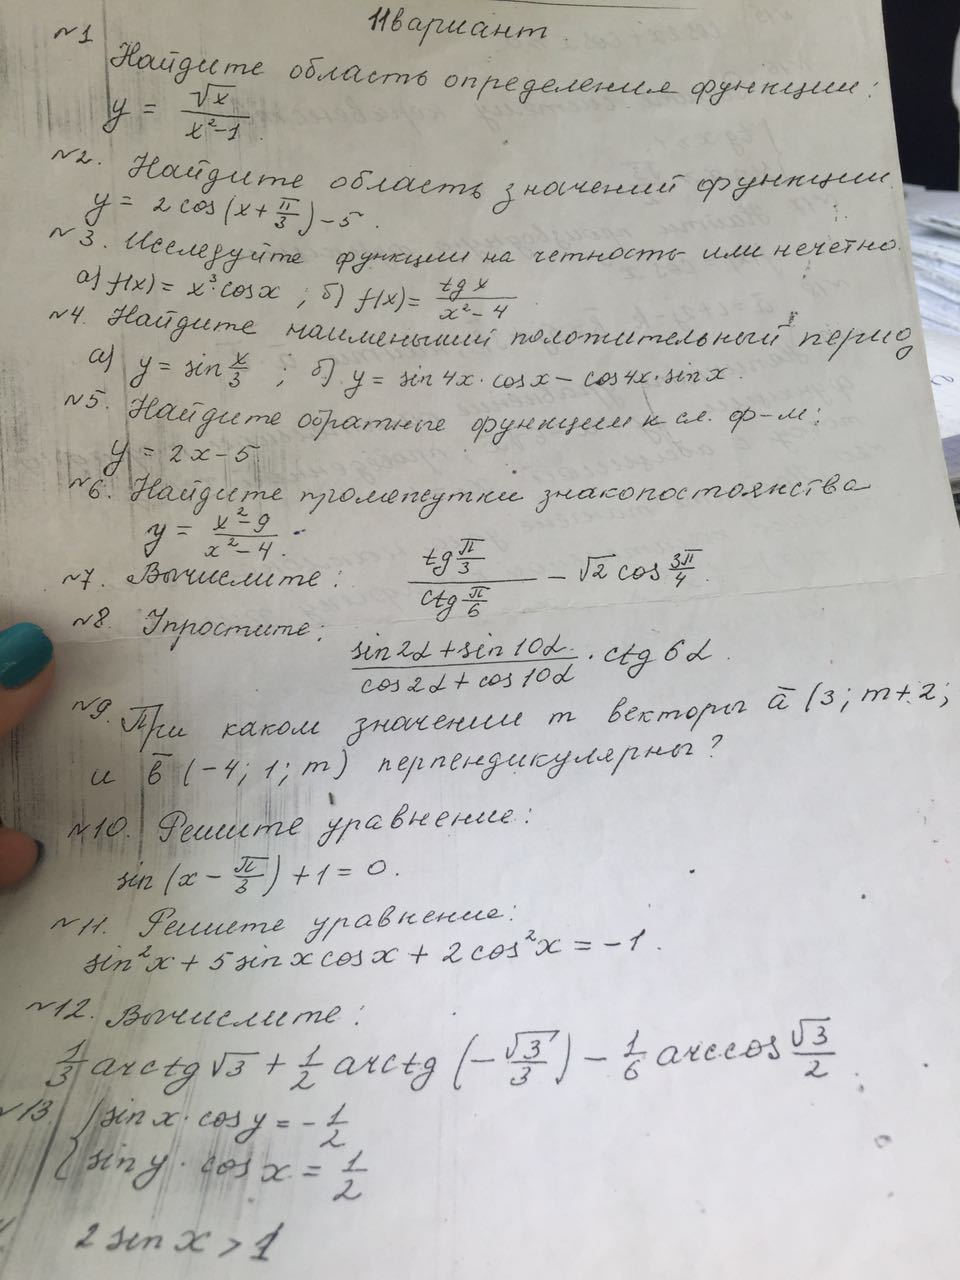 11 вариант.
№1 Найдите область определения функции:
y = √x / (x²-1).
№2. Найдите область значений функции
y = 2cos(x+π/3)-5.
№3. Исследуйте функции на четность или нечетно.
а) f(x) = x³·cosx ; б) f(x) = tg x / (x²-4)
№4. Найдите наименьший положительный период
а) y = sin x/3 ; б) y = sin4x·cosx - cos4x·sinx.
№5. Найдите обратные функции к сл. ф-м:
y = 2x-5
№6. Найдите промежутки знакопостоянства
y = (x²-9) / (x²-4).
№7. Вычислите: tg π/3 / ctg π/6 - √2 cos 3π/4.
№8. Упростите:
(sin2α + sin10α) / (cos2α + cos10α) · ctg6α.
№9. При каком значении m векторы a̅ (3; m+2;
и b̅ (-4; 1; m) перпендикулярны?
№10. Решите уравнение:
sin(x - π/3) + 1 = 0.
№11. Решите уравнение:
sin²x + 5sinxcosx + 2cos²x = -1.
№12. Вычислите:
1/3 arctg√3 + 1/2 arctg(-√3/3) - 1/6 arccos √3/2
№13. { sinx·cosy = -1/2
siny·cosx = 1/2
2sinx > 1